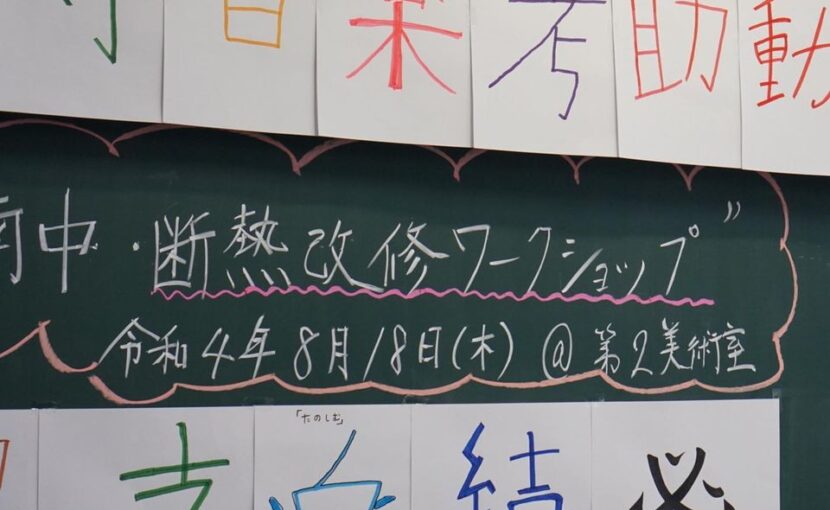 考 助 動
中・断熱改修ワークショップ”
令和4年8月18日(木) @ 第2美術室
「たのしむ」
結